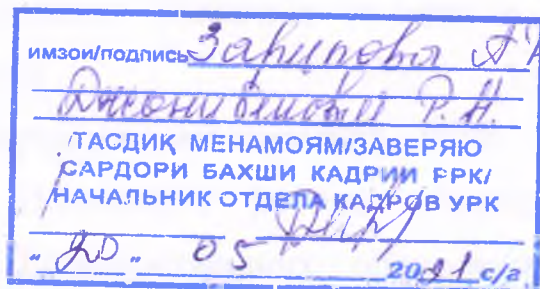 имзои/подпись Зарипова А
Р.Н.
ТАСДИҚ МЕНАМОЯМ/ЗАВЕРЯЮ
САРДОРИ БАХШИ КАДРИИ РРК/
НАЧАЛЬНИК ОТДЕЛА КАДРОВ УРК
"20" 05 2021 с/г